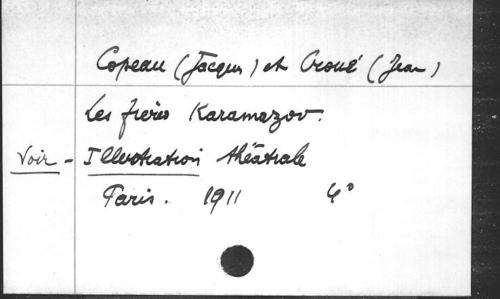 Copeau (Jacques) et Croué (Jean)
Les frères Karamazov.
Voir - Illustration théâtrale
Paris. 1911 4°